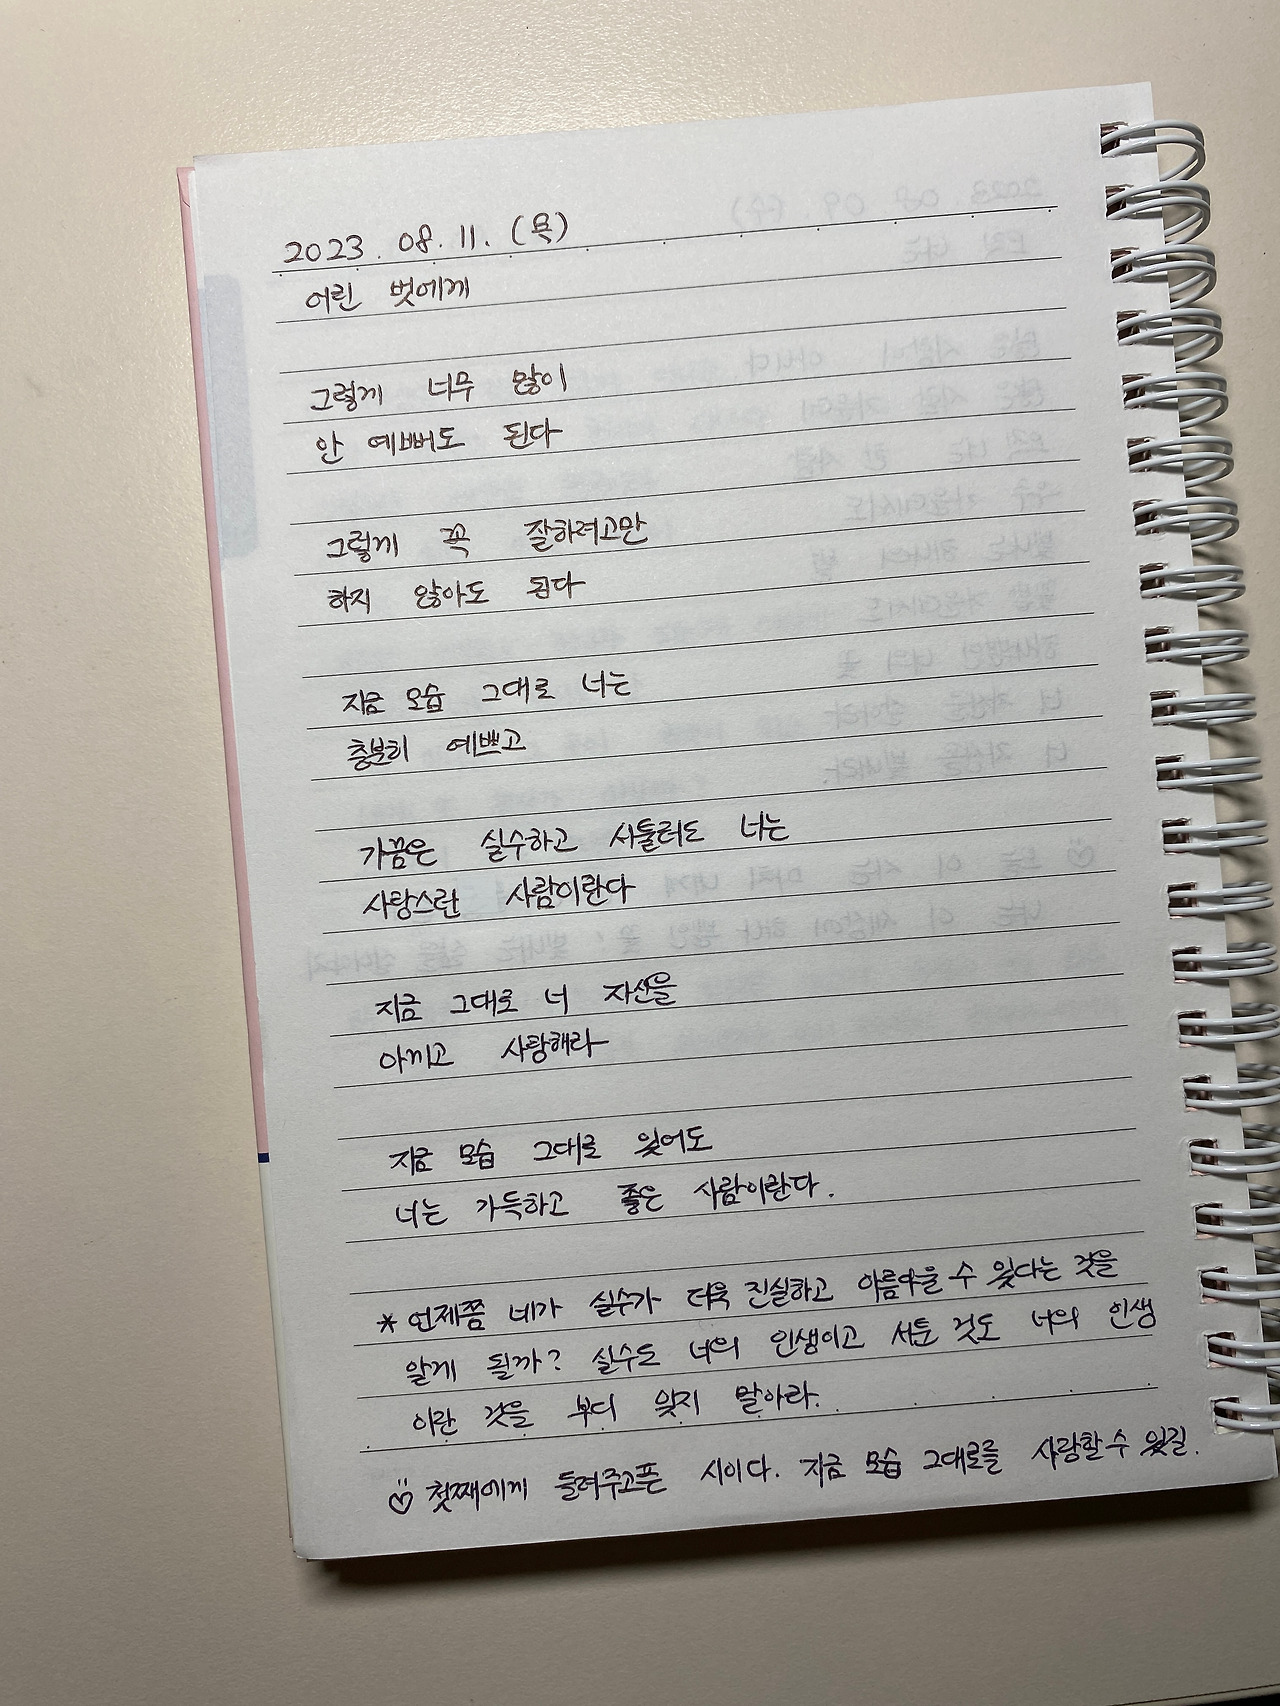 2023. 08. 11. (목)
어린 벗에게
그렇게 너무 많이
안 예뻐도 된다
그렇게 꼭 잘하려고만
하지 않아도 된다
지금 모습 그대로 너는
충분히 예쁘고
가끔은 실수하고 서툴러도 너는
사랑스런 사람이란다
지금 그대로 너 자신을
아끼고 사랑해라
지금 모습 그대로 있어도
너는 가득하고 좋은 사람이란다.
* 언제쯤 네가 실수가 더욱 진실하고 아름다울 수 있다는 것을
알게 될까? 실수도 너의 인생이고 서툰 것도 너의 인생
이란 것을 부디 잊지 말아라.
첫째에게 들려주고픈 시이다. 지금 모습 그대로를 사랑할 수 있길.